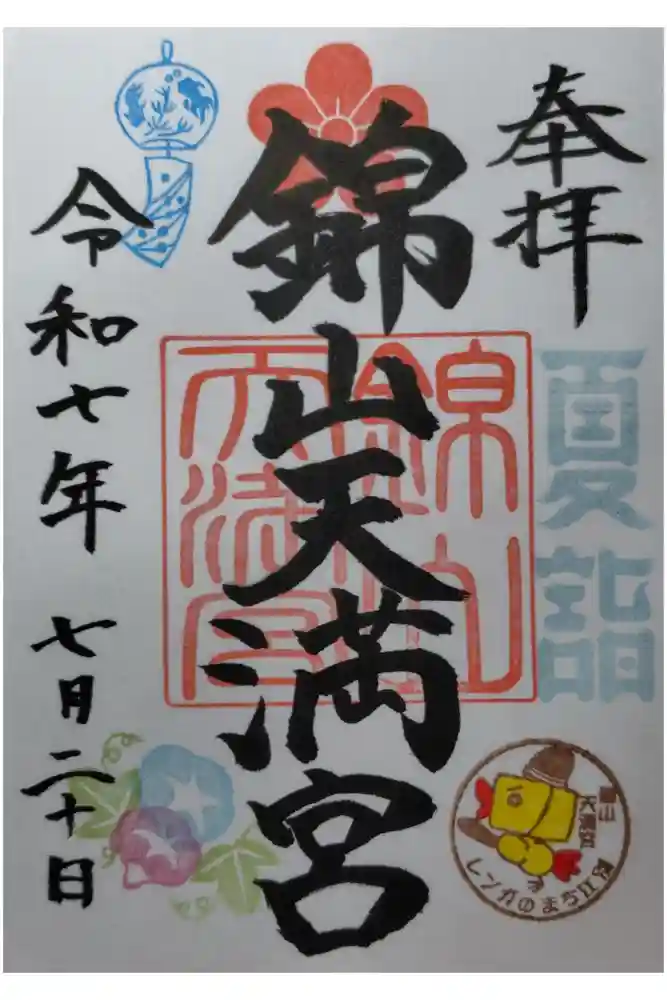 奉拝
夏詣
錦山天満宮
錦山天満宮
令和七年 七月二十日
レンガのまち江別